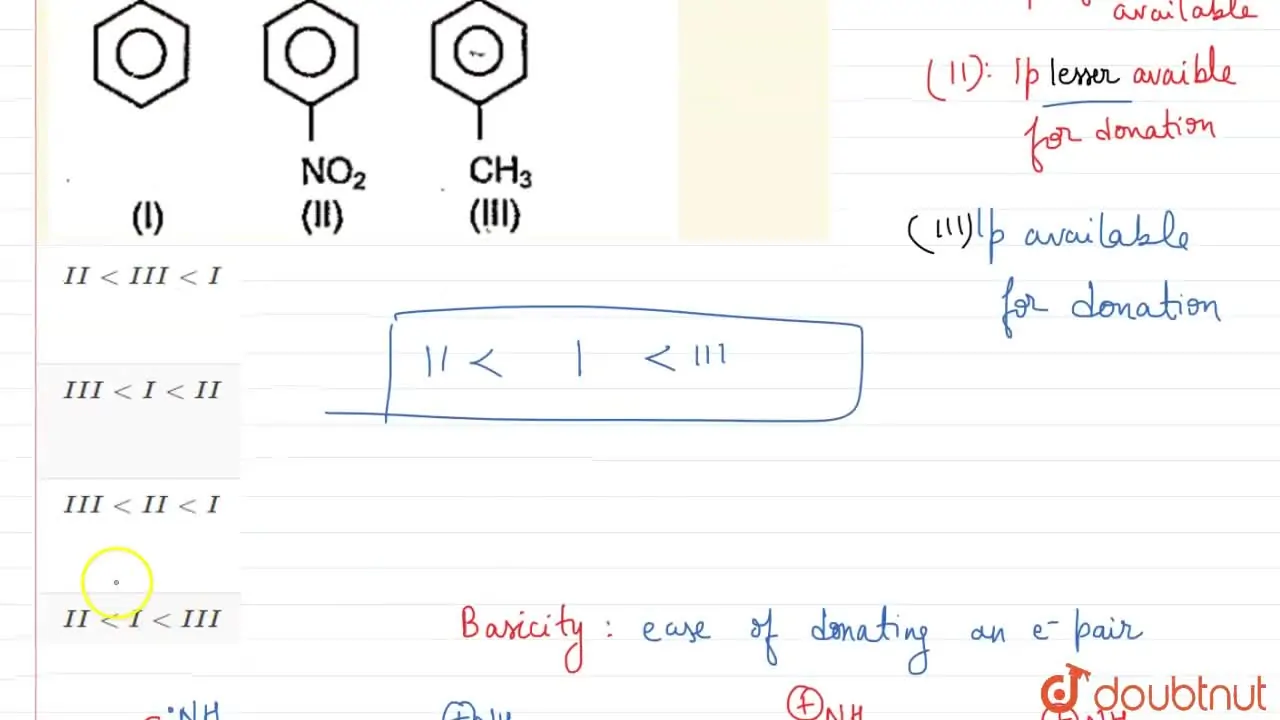 available
(II): lp lesser avaible
for donation
NO2
CH3
(I)
(II)
(III)
(III) lp available
for donation
II < III < I
II < I < III
III < I < II
III < II < I
II < I < III
Basicity: ease of donating an e- pair
NH
NH
NH
doubtnut